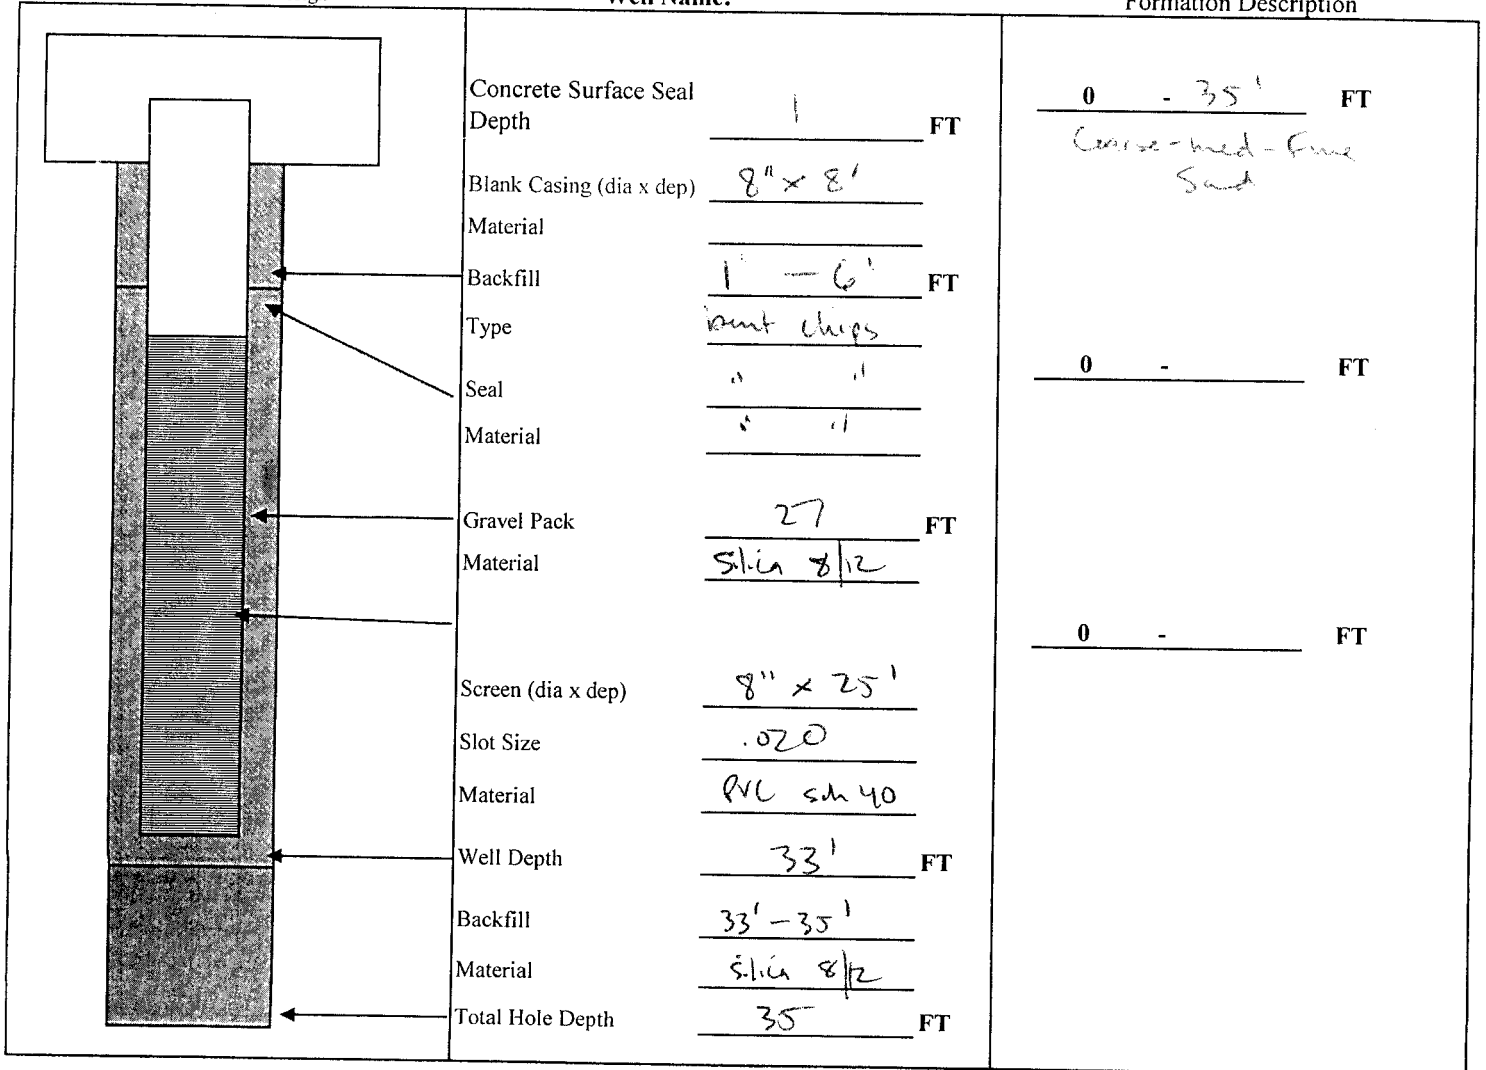 Well Name:
Formation Description
Concrete Surface Seal
Depth 1 FT
Blank Casing (dia x dep) 8" x 8'
Material
Backfill 1' - 6' FT
Type bent chips
Seal " "
Material " "
Gravel Pack 27 FT
Material Silica 8/12
Screen (dia x dep) 8" x 25'
Slot Size .020
Material PVC sch 40
Well Depth 33' FT
Backfill 33' - 35'
Material silica 8/12
Total Hole Depth 35 FT
0 - 35' FT
Coarse-med-Fine
Sand
0 - FT
0 - FT